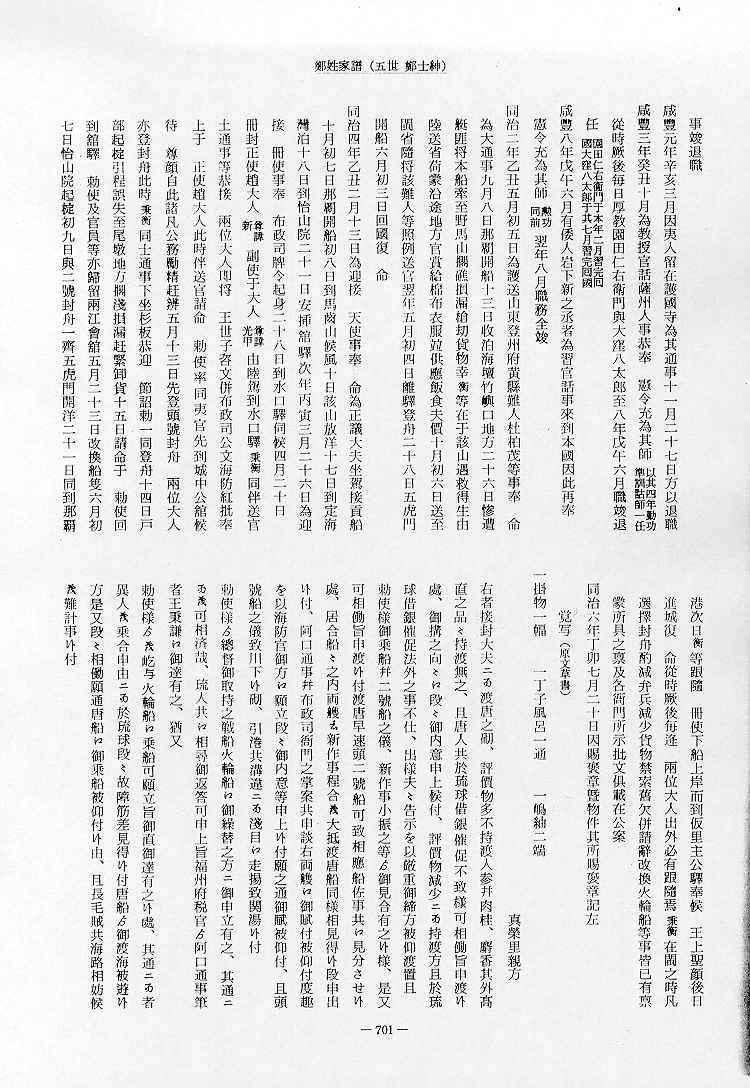 鄭姓家譜（五世　鄭士紳）
事竣退職
咸豐元年辛亥三月因夷人留在護國寺為其通事十一月二十七日方以退職
咸豐三年癸丑十月為教授官話薩州人事恭奉　憲令充為其師以其四年勤功準訓詁師一任
從時厥後每日厚教園田仁右衞門與大窪八太郎至八年戊午六月職竣退
任園田仁右衞門于本年二月習完回國大窪八太郎于其七月習完回國
咸豐八年戊午六月有倭人岩下新之丞者為習官話事來到本國因此再奉
憲令充為其師勲功同前　翌年八月職務全竣
同治二年乙丑五月初五日為護送山東登州府黃縣難人杜柏茂等事奉　命
為大通事九月八日那覇開船十三日收泊海壇竹嶼口地方二十六日慘遭
艇匪将本船牽至野馬山擱礁損漏槍刧貨物幸衡等在于該山遇救得生由
陸送省荷蒙沿途地方官賞給棉布衣服竝供應飯食夫價十月初六日送至
閩省隨将該難人等照例送官翌年五月初四日離驛登舟二十八日五虎門
開船六月初三日回國復　命
同治四年乙丑二月十三日為迎接　天使事奉　命為正議大夫坐駕接貢船
十月初七日那覇開船初八日到馬齒山候風十日該山放洋十七日到定海
灣泊十八日到怡山院二十一日安插舘驛次年丙寅三月二十六日為迎
接　冊使事奉　布政司牌令起身二十八日到水口驛伺候四月二十日
冊封正使趙大人爺諱新　副使于大人爺諱光甲　由陸駕到水口驛乗衡同伴送官
土通事等恭接　兩位大人即将　王世子咨文併布政司公文海防紅批奉
上于　正使趙大人此時伴送官請命　勅使率同夷官先到城中公舘候
待　尊顏自此諸凡公務勵精赶辨五月十三日先登頭號封舟　兩位大人
亦登封舟此時乗衡同士通事下坐杉板恭迎　節詔勅一同登舟十四日戸
部起椗引程誤失至尾墩地方擱淺損漏赶緊卸貨十五日請命于　勅使回
到舘驛　勅使及官員等亦歸留兩江會舘五月二十三日改換船隻六月初
七日怡山院起椗初九日與二號封舟一齊五虎門開洋二十一日同到那覇
港次日衡等跟隨　冊使下船上岸而到仮里主公驛奉候　王上聖顏後日
進城復　命從時厥後每逢　兩位大人出外必有跟隨焉乗衡在閩之時凡
選擇封舟酌減弁兵減少貨物禁索舊欠併請辭改換火輪船等事皆已有禀
蒙所具之禀及各衙門所示批文俱載在公案
同治六年丁卯七月二十日因賜褒章曁物件其所賜褒章記左
覚写（原文草書）
一掛物一幅　一丁子風呂一通　一嶋紬二端
真榮里親方
右者接封大夫ニ而渡唐之砌、評價物多不持渡人参并肉桂、麝香其外高
直之品〻持渡無之、且唐人共於琉球借銀催促不致樣可相働旨申渡候
處、御搆之向〻江段〻御内意申上候付、評價物減少ニ而持渡方且於琉
球借銀催促法外之事不仕、出樣夫〻告示を以嚴重御締方被仰渡置且
勅使樣御乗船并二號船之儀、新作事小振之等ゟ御見合有之候樣、是又
可相働旨申渡候付渡唐早速頭二號船可致相應船佐事共江見分させ候
處、居合船〻之内両艘者新作事程合茂大抵渡唐船同樣相見得候段申出
候付、阿口通事并布政司衙門之掌案共申談右両艘江御賦付被仰付度趣
を以海防官御方江願立段〻御内意等申上候付願之通御賦被仰付、且頭
號船之儀致川下候砌、引港共溝違ニ而淺目江走揚致関湯候付
勅使樣ゟ總督御取持之戰船火輪船江御繰替之方ニ御申立有之、其通ニ
而茂可相済哉、琉人共江相尋御返答可申上旨福州府税官ゟ阿口通事筆
者王秉謙江御達有之、猶又
勅使樣ゟ茂屹与火輪船江乗船可願立旨御直御達有之候處、其通ニ而者
異人茂乗合申由ニ而於琉球段〻故障筋差見得候付唐船ゟ御渡海被遊候
方是又段〻相働願通唐船江御乗船被仰付候由、且長毛賊共海路相妨候
茂難計事候付
— 701 —